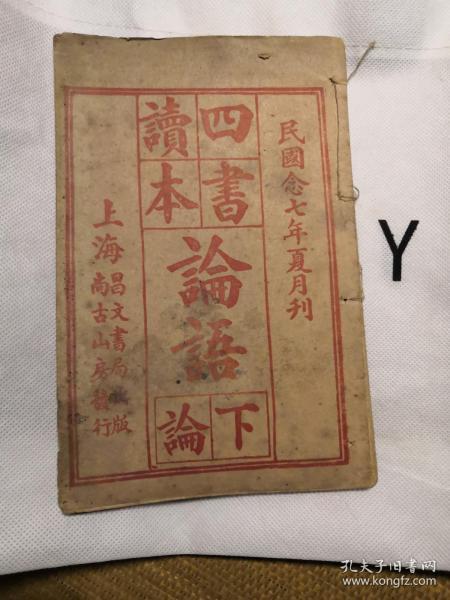 民國念七年夏月刊
四書
讀本
論語
下
論
上海
昌文書局版
尚古山房發行
Y
孔夫子旧书网
www.kongfz.com